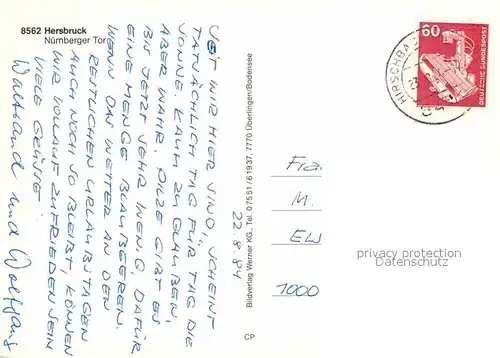 8562 Hersbruck
Nürnberger Tor
SEIT WIR HIER SIND, SCHEINT
TATSÄCHLICH TAG FÜR TAG DIE
SONNE KAUM ZU GLAUBEN,
ABER WAHR. PILZE GIBT ES
BIS JETZT SEHR WENIG DAFÜR
EINE MENGE BLAUBEEREN.
WENN DAS WETTER AN DEN
RESTLICHEN URLAUBSTAGEN
AUCH NOCH SO BLEIBT, KÖNNEN
WIR VOLLAUF ZUFRIEDEN SEIN
VIELE GRÜSSE
Waltraud und Wolfgang
22.8.84
Bildverlag Werner KG., Tel. 07551/61937, 7770 Überlingen/Bodensee
CP
60
DEUTSCHE BUNDESPOST
HIRSCHBA
Fra
M.
ELS
1000
privacy protection
Datenschutz